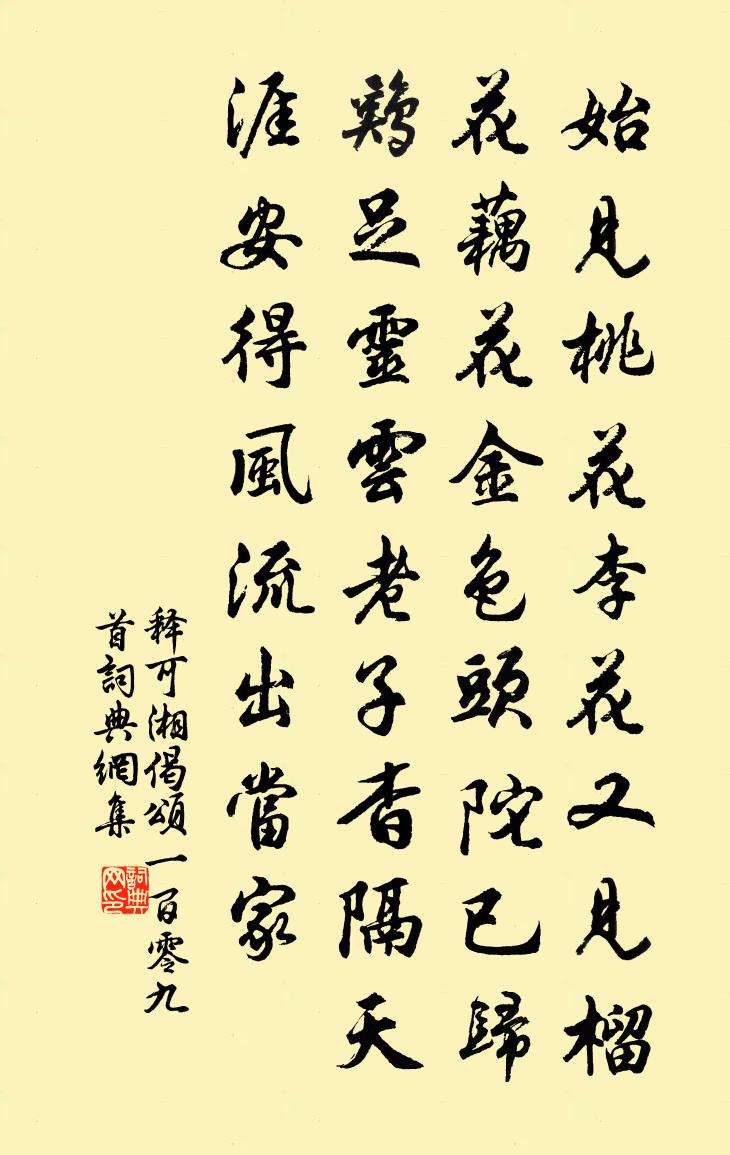 始見桃花李花又見榴
花藕花金色頭陀已歸
鷄足靈雲老子杳隔天
涯安得風流出當家
释可湘偈頌一百零九
首詞典網集
詞典网印